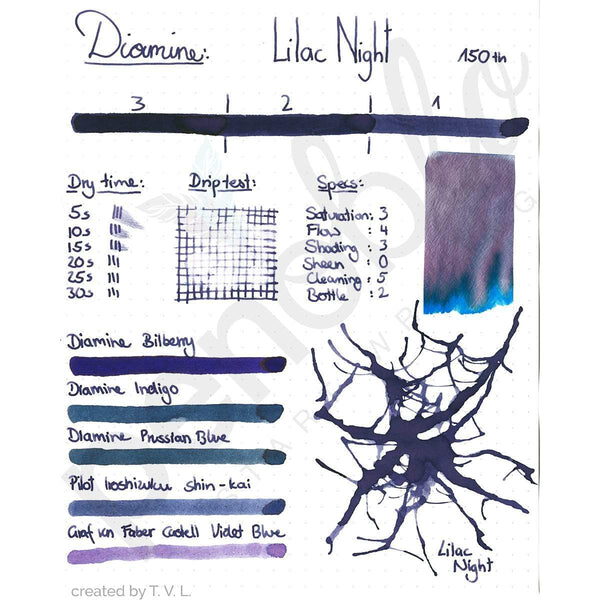 Diamine: Lilac Night 150th
3 2 1
Dry time: Driptest: Specs:
5s Saturation: 3
10s Flow : 4
15s Shading : 3
20s Sheen : 0
25s Cleaning : 5
30s Bottle : 2
Diamine Bilberry
Diamine Indigo
Diamine Prussian Blue
Pilot Iroshizuku Shin-kai
Graf von Faber Castell Violet Blue
Lilac
Night
created by T. V. L.